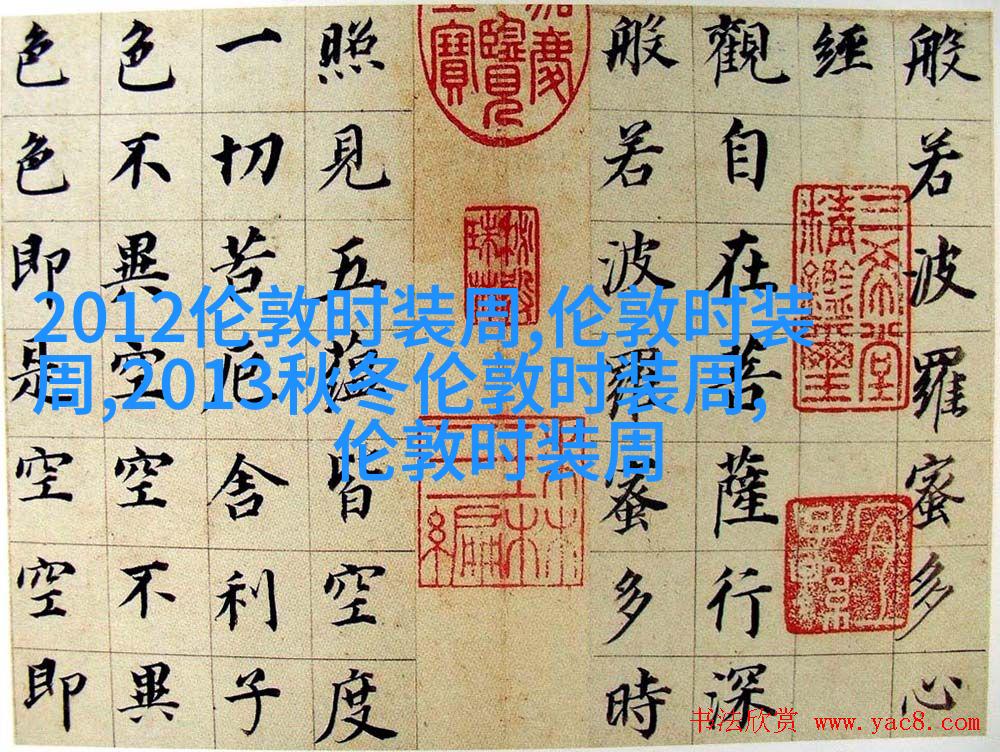 般若波羅蜜多心
經
觀自在菩薩行深
般若波羅蜜多時
照見五蘊皆空度
一切苦厄舍利子
色不異空空不異
色色即是空空即
三希堂精鑑璽
秘殿珠林
2012伦敦时装周,伦敦时装
周,2013秋冬伦敦时装周,
伦敦时装周
书法欣赏 www.yac8.com